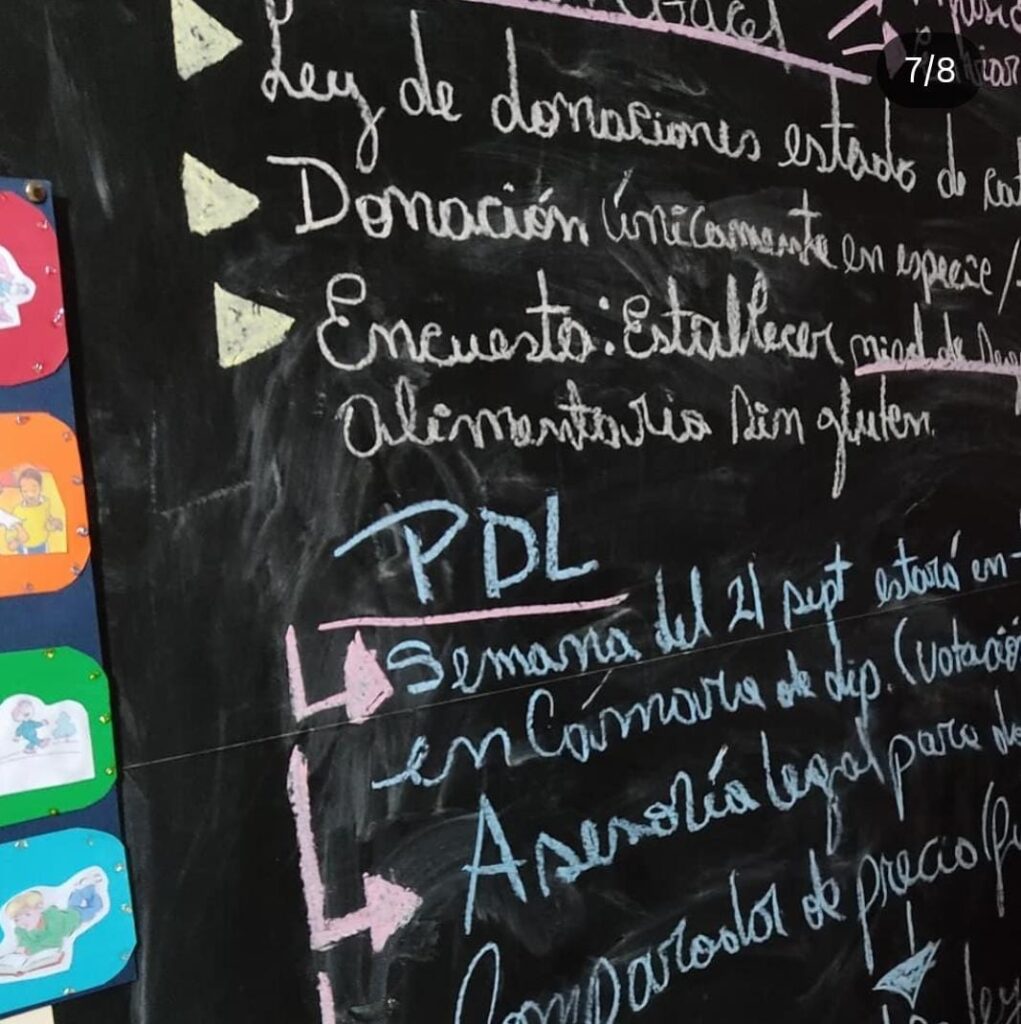 7/8
Ley de donaciones estado de
Donación únicamente en especie /
Encuesta: Establecer nivel de
alimentaria sin gluten.
PDL
Semana del 21 sept estará en
en Cámara de dip. (votación
Asesoría legal para
Comparador de precio